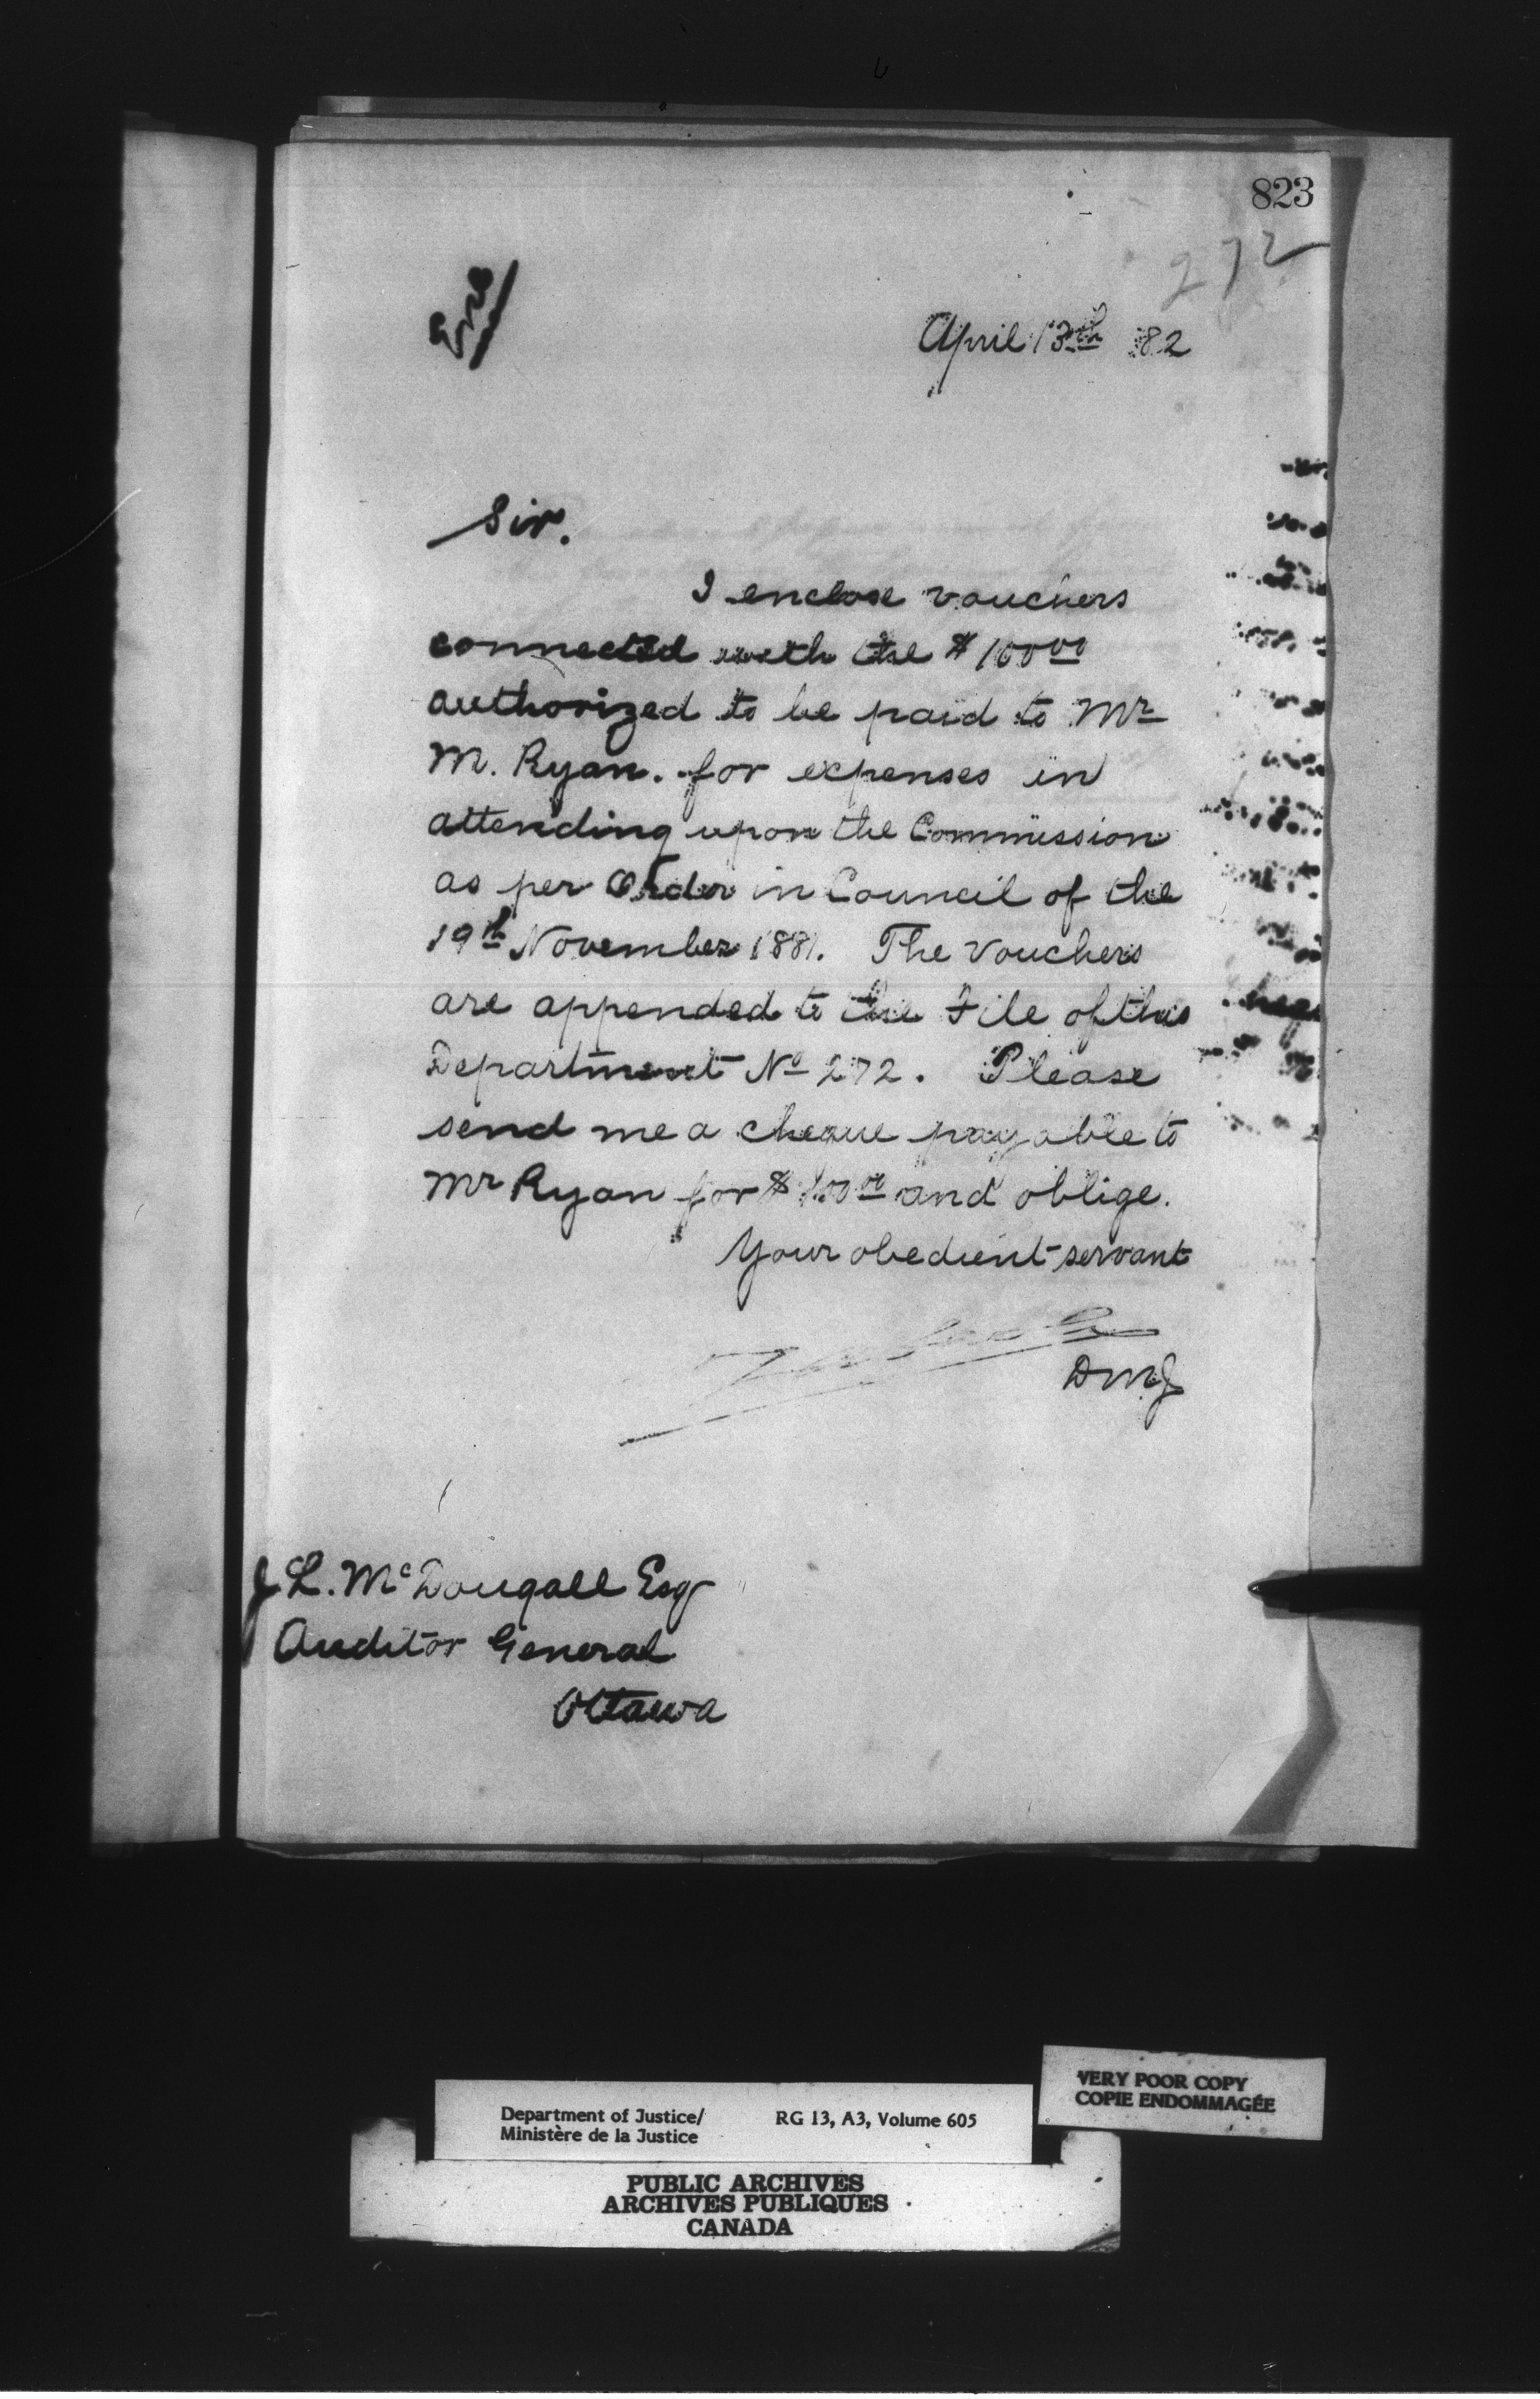 823
272
April 13th 82
Sir.
I enclose vouchers
connected with the $100 00
authorized to be paid to Mr
M. Ryan. for expenses in
attending upon the Commission
as per Order in Council of the
19th November 1881. The Vouchers
are appended to the File of this
Department No 272. Please
send me a cheque payable to
Mr Ryan for $100 00 and oblige.
Your obedient servant
DMJ
J L. McDougall Esq
Auditor General
Ottawa
VERY POOR COPY
COPIE ENDOMMAGÉE
Department of Justice/ RG 13, A3, Volume 605
Ministère de la Justice
PUBLIC ARCHIVES
ARCHIVES PUBLIQUES
CANADA